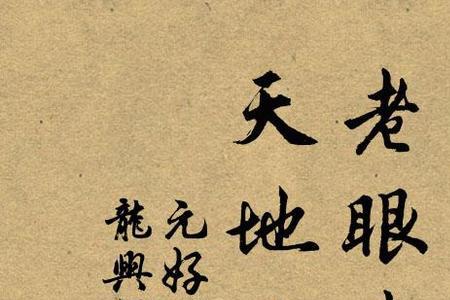 老眼
天地
元好
龍興